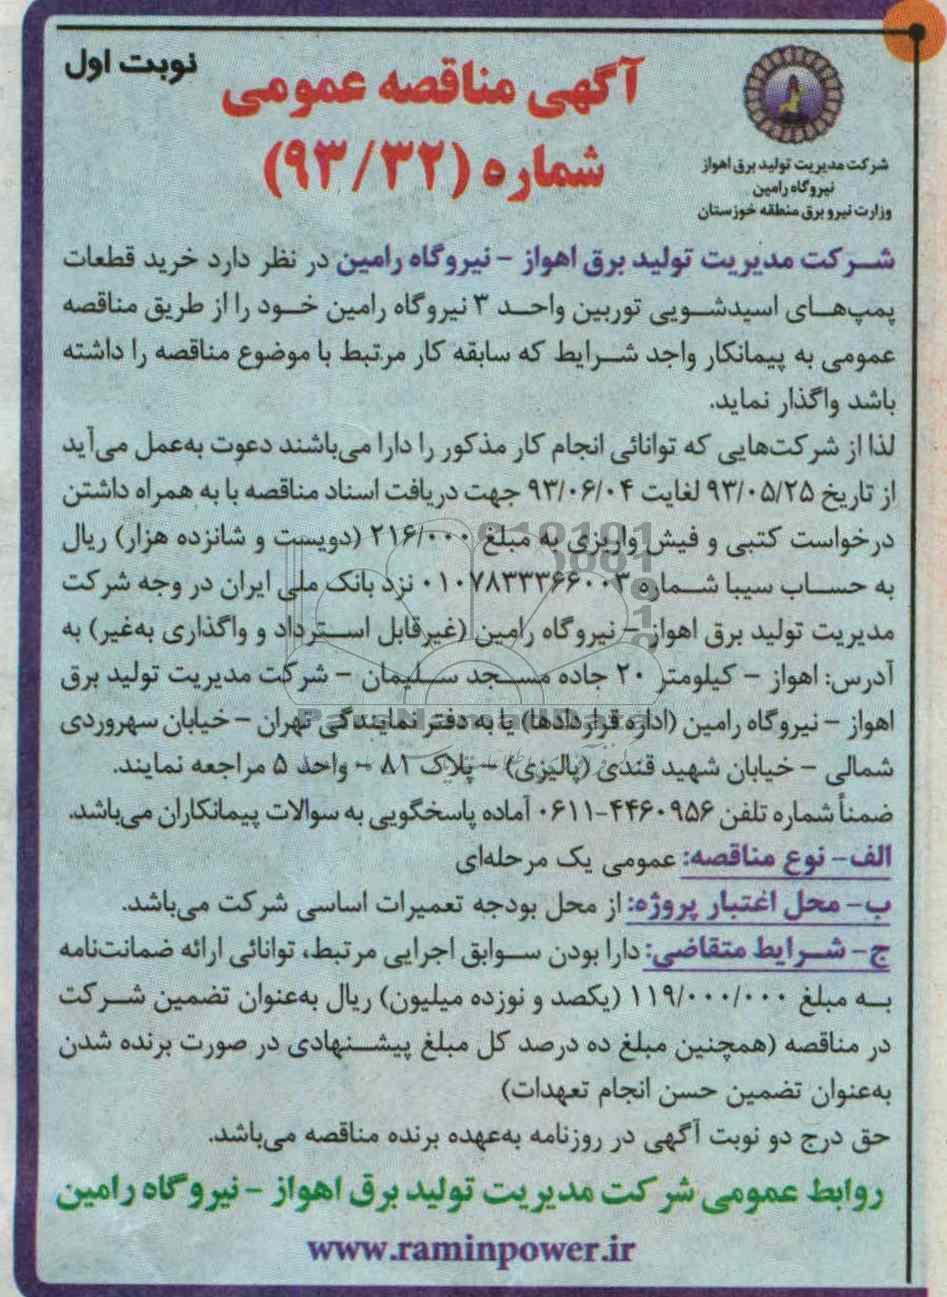 نوبت اول
آگهی مناقصه عمومی
شماره (۹۳/۳۲)
شرکت مدیریت تولید برق اهواز
نیروگاه رامین
وزارت نیرو برق منطقه خوزستان
شرکت مدیریت تولید برق اهواز - نیروگاه رامین در نظر دارد خرید قطعات
پمپ‌های اسیدشویی توربین واحد ۳ نیروگاه رامین خود را از طریق مناقصه
عمومی به پیمانکار واجد شرایط که سابقه کار مرتبط با موضوع مناقصه را داشته
باشد واگذار نماید.
لذا از شرکت‌هایی که توانائی انجام کار مذکور را دارا می‌باشند دعوت به‌عمل می‌آید
از تاریخ ۹۳/۰۵/۲۵ لغایت ۹۳/۰۶/۰۴ جهت دریافت اسناد مناقصه با به همراه داشتن
درخواست کتبی و فیش واریزی به مبلغ ۲۱۶/۰۰۰ (دویست و شانزده هزار) ریال
به حساب سیبا شماره ۰۱۰۷۸۳۳۳۶۶۰۰۳ نزد بانک ملی ایران در وجه شرکت
مدیریت تولید برق اهواز - نیروگاه رامین (غیرقابل استرداد و واگذاری به‌غیر) به
آدرس: اهواز - کیلومتر ۲۰ جاده مسجد سلیمان - شرکت مدیریت تولید برق
اهواز - نیروگاه رامین (اداره قراردادها) یا به دفتر نمایندگی تهران - خیابان سهروردی
شمالی - خیابان شهید قندی (پالیزی) - پلاک ۸۱ - واحد ۵ مراجعه نمایند.
ضمناً شماره تلفن ۴۴۶۰۹۵۶-۰۶۱۱ آماده پاسخگویی به سوالات پیمانکاران می‌باشد.
الف- نوع مناقصه: عمومی یک مرحله‌ای
ب- محل اغتبار پروژه: از محل بودجه تعمیرات اساسی شرکت می‌باشد.
ج- شرایط متقاضی: دارا بودن سوابق اجرایی مرتبط، توانائی ارائه ضمانت‌نامه
به مبلغ ۱۱۹/۰۰۰/۰۰۰ (یکصد و نوزده میلیون) ریال به‌عنوان تضمین شرکت
در مناقصه (همچنین مبلغ ده درصد کل مبلغ پیشنهادی در صورت برنده شدن
به‌عنوان تضمین حسن انجام تعهدات)
حق درج دو نوبت آگهی در روزنامه به‌عهده برنده مناقصه می‌باشد.
روابط عمومی شرکت مدیریت تولید برق اهواز - نیروگاه رامین
www.raminpower.ir